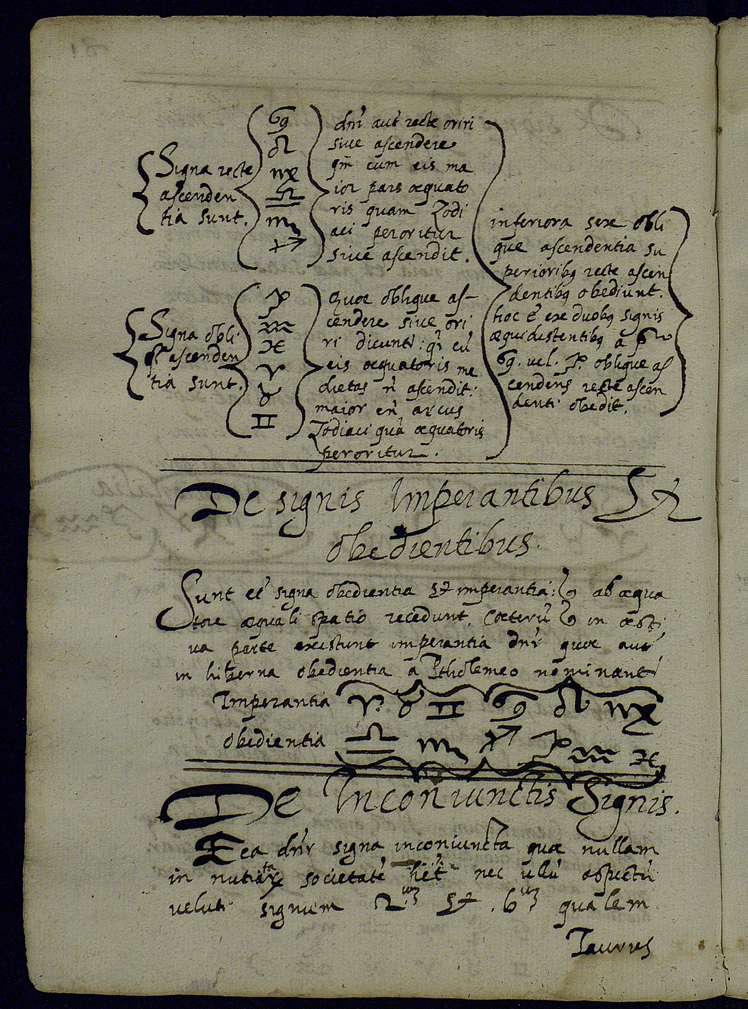 Signa recte
ascenden
tia sunt.
♋
♌
♍
♎
♏
♐
dnr aut recte oriri
sive ascendere
qm cum eis ma
ior pars æquato
ris quam Zodi
aci peroritur
sive ascendit.
Signa obli
q ascenden
tia sunt.
♑
♒
♓
♈
♉
♊
Quæ oblique as-
cendere sive ori
ri dicunt: qr cũ
eis æquatoris me
dietas ñ ascendit:
maior em arcus
Zodiaci quã æquatoris
peroritur.
inferiora sere obli
que ascendentia su
perioribq recte ascen
dentibq obediunt.
hoc ē exe duobq signis
æquidistentibq a
♋. vel. ♑. oblique as
cendens recte ascen
denti obedit.
De signis Imperantibus Et
obedientibus.
Sunt et signa obedientia et imperantia: ab æqua
tore æquali spatio recedunt. Cæterũ in æsti
va parte existunt imperantia dnr quæ aut
in hiberna obedientia a Ptholemeo nominant
Imperantia ♈ ♉ ♊ ♋ ♌ ♍
obedientia ♎ ♏ ♐ ♑ ♒ ♓
De Inconiunctis Signis.
Ea dnr signa inconiuncta quæ nullam
in societatẽ hẽt nec ullũ aspectũ
veluti signum 2 et .6 qualem
Taurus